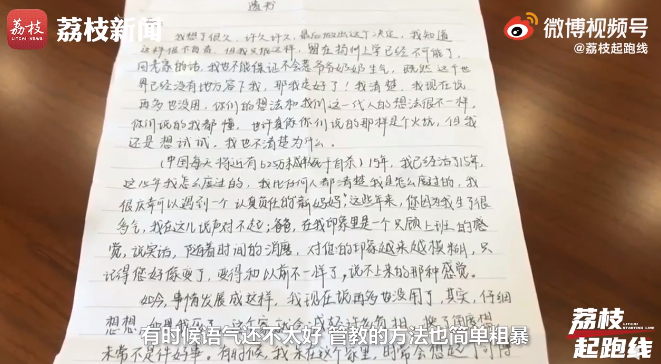 荔枝新闻
荔枝新闻
微博视频号
@荔枝起跑线
遗书
我想了很久，许久许久，最后做出这个决定，我知道
这样很不自私，但我只能这样，留在扬州上学已经不可能了，
回老家的话，我也不能保证不会惹爷爷奶奶生气，既然这个世
界已经没有地方容下我，那我走好了！我清楚，我现在说
再多也没用，你们的想法和我们这一代人的想法很不一样。
你们说的我都懂，也许真像你们说的那样是个火坑，但我
还是想试试，我也不清楚为什么。
（中国每天将近有 死于自杀）15年，我已经活了15年，
这15年我怎么度过的，我比任何人都清楚我是怎么度过的，我
很庆幸可以遇到一个认真负责的新妈妈；这些年来，您因为我生了很
多气，我在这儿说声对不起；爸爸，在我印象里是一个只顾上班的感
觉，说实话，随着时间的消磨，对您的印象越来越模糊，只
记得您好像变了，变得和以前不一样了，说不上来的那种感觉。
如今，事情发展成这样，我现在说再多也没用了，其实，仔细
想想，
未尝不是件好事。有时候，我呆在这个家里，时常会想
有时候语气还不太好 管教的方法也简单粗暴
荔枝
起跑线